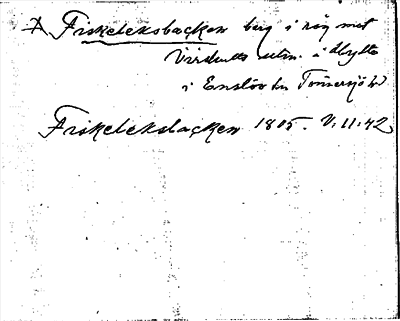 Fiskeleksbacken berg i råg mot
Virshults utm. i Hylte
i Enslöv sn Tönnersjö hd
Fiskeleksbacken 1805. V:11:42